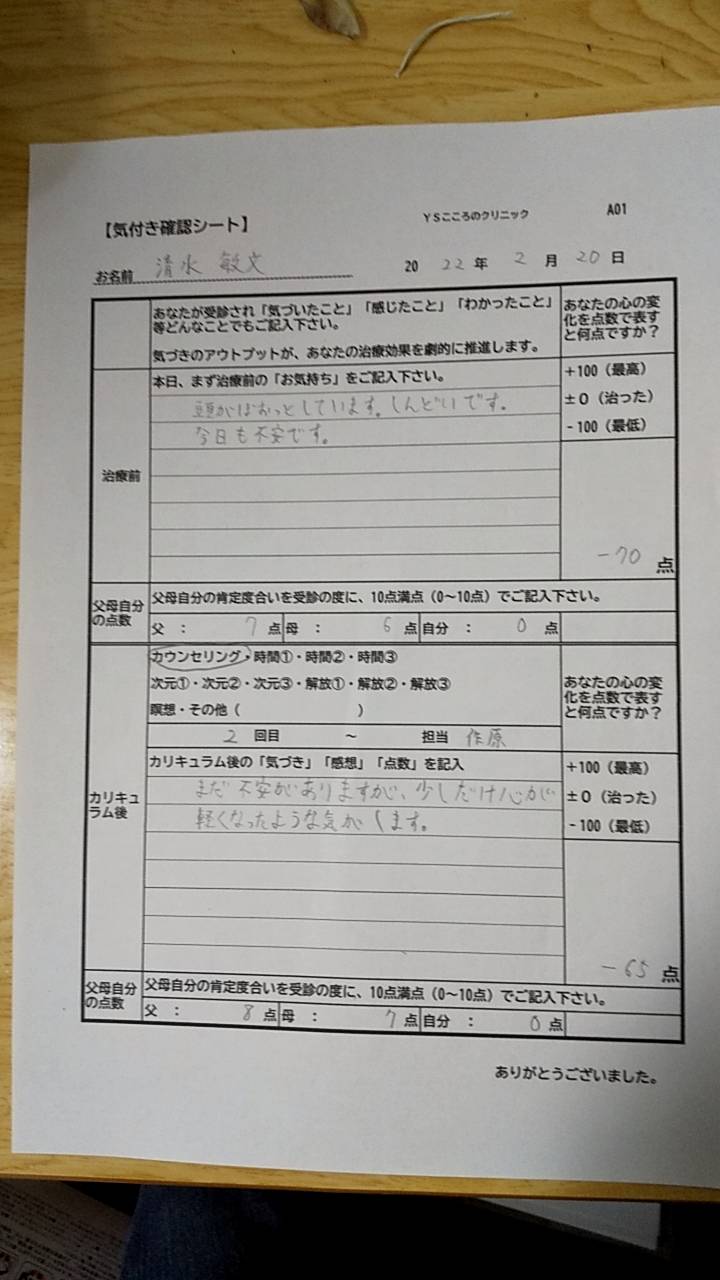 【気付き確認シート】 YSこころのクリニック A01
お名前 清水 敏文 2022年 2月 20日
あなたが受診され「気づいたこと」「感じたこと」「わかったこと」
等どんなことでもご記入下さい。
気づきのアウトプットが、あなたの治療効果を劇的に推進します。
あなたの心の変
化を点数で表す
と何点ですか?
治療前
本日、まず治療前の「お気持ち」をご記入下さい。
頭がぼおっとしています。しんどいです。
今日も不安です。
+100(最高)
±0(治った)
-100(最低)
-70 点
父母自分
の点数
父母自分の肯定度合いを受診の度に、10点満点(0~10点)でご記入下さい。
父 : 7 点 母 : 6 点 自分 : 0 点
カリキュ
ラム後
カウンセリング・時間①・時間②・時間③
次元①・次元②・次元③・解放①・解放②・解放③
瞑想・その他( )
2 回目 ~ 担当 作原
あなたの心の変
化を点数で表す
と何点ですか?
カリキュラム後の「気づき」「感想」「点数」を記入
まだ不安がありますが、少しだけ心が
軽くなったような気がします。
+100(最高)
±0(治った)
-100(最低)
-65 点
父母自分
の点数
父母自分の肯定度合いを受診の度に、10点満点(0~10点)でご記入下さい。
父 : 8 点 母 : 7 点 自分 : 0 点
ありがとうございました。